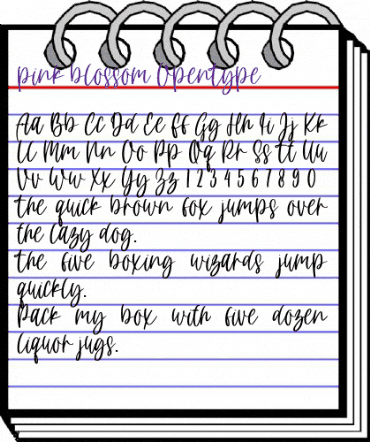 pink blossom Opentype
Aa Bb Cc Dd Ee Ff Gg Hh Ii Jj Kk
Ll Mm Nn Oo Pp Qq Rr Ss Tt Uu
Vv Ww Xx Yy Zz 1 2 3 4 5 6 7 8 9 0
the quick brown fox jumps over
the lazy dog.
the five boxing wizards jump
quickly.
Pack my box with five dozen
liquor jugs.